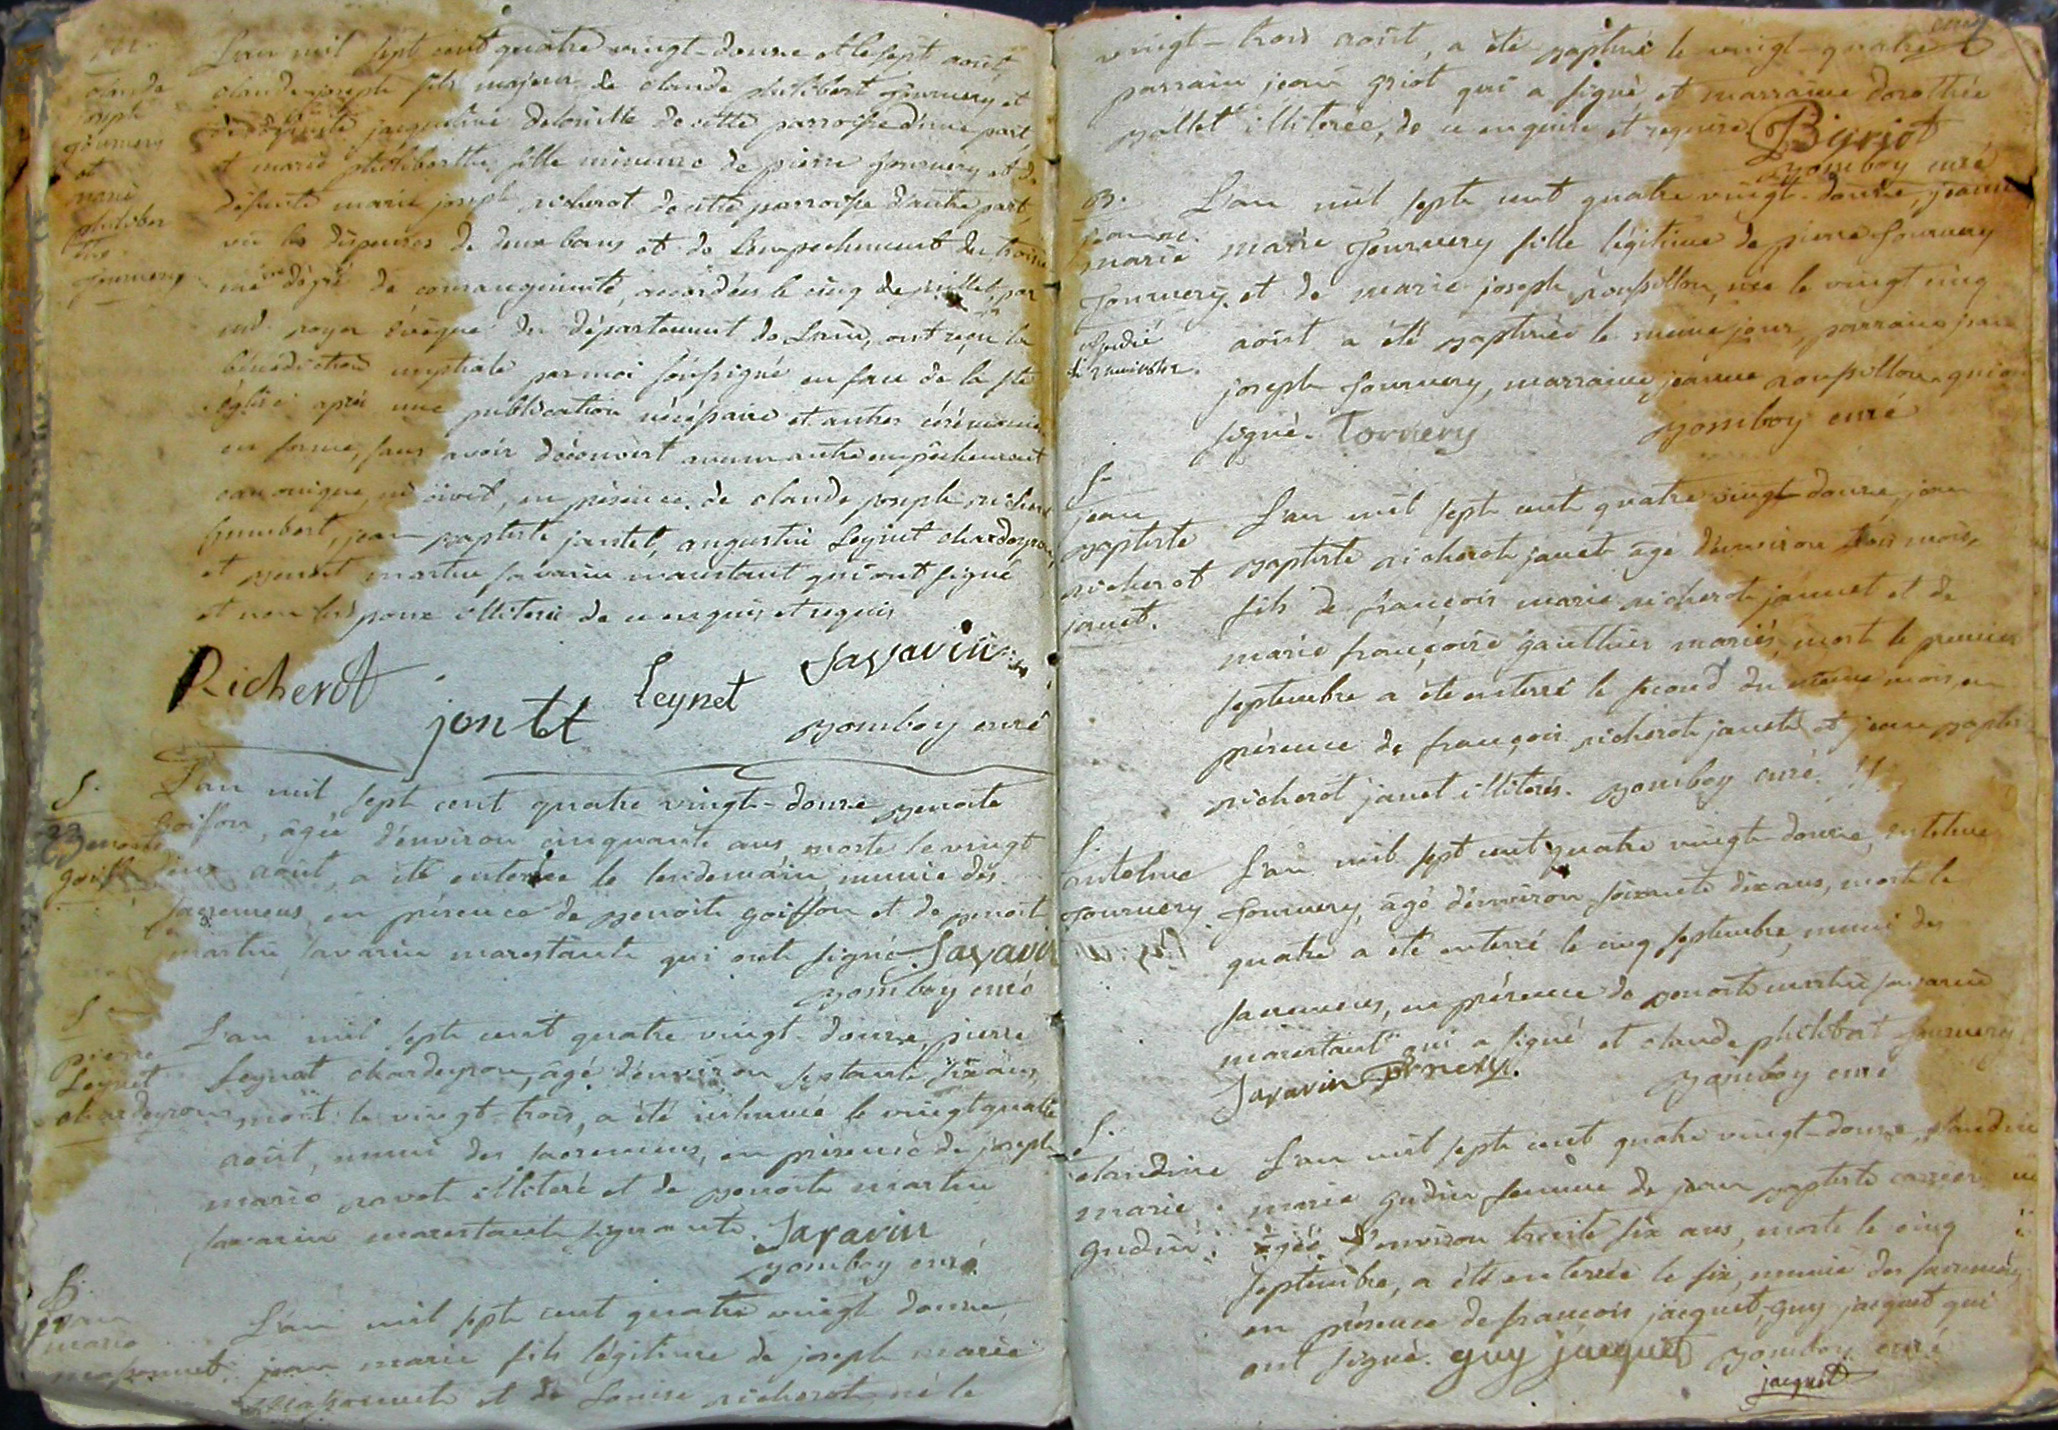 claude
joseph
fournery
et
marie
philiber
the
fournery
L'an mil sept cent quatre vingt-douze et le sept aoüt,
claude joseph fils majeur de claude philibert fournery et
de défunte jacqueline de cette parroisse d'une part,
et marie philiberthe fille mineure de pierre fournery et de
défunte marie joseph richerot de cette parroisse d'autre part,
vü les dispenses de deux bans et de l'empechement du troisie
me dégré de consanguinité, accordées le cinq de juillet, par
md. royer évêque du département de Lain, ont reçu la
bénédiction nuptiale par moi soussigné en face de la ste
église après une publication nécéssaire et autres cérémonies
en forme, sans avoir découvert aucun autre empêchement
canonique, ni civil, en présence de claude joseph richerot
humbert, jean baptiste jantet, augustin Leynet chardeyron,
et benoit martin savarin marestant qui ont signé
et non les poux illiteré de ce enquis et requis
Richerot jontet Leynet Savarin
bomboy curé
S.
benoite
goiffon
L'an mil sept cent quatre vingt-douze benoite
goiffon, âgée d'environ cinquante ans morte le vingt
deux août, a été enterrée le lendemain munie des
sacremens en présence de benoite goiffon et de benoit
martin savarin marestant qui ont signé. Savarin
bomboy curé
S.
pierre
Leynet
chardeyron
L'an mil sept cent quatre vingt-douze, pierre
Leynet chardeyron, âgé d'environ septante six ans,
mort le vingt-trois, a été inhumé le vingt quatre
août, muni des sacremens, en présence de joseph
marie ravet illiteré et de benoit martin
savarin marestant signant. Savarin
bomboy curé
B.
jean
marie
massonnet
L'an mil sept cent quatre vingt douze,
jean marie fils légitime de joseph marie
massonnet et de Louise richerot, né le
vingt-trois aoüt, a été baptisé le vingt-quatre
parrain jean griot qui a signé, et marraine dorothée
pallet illiterée, de ce enquise et requise.
bomboy curé
B.
jeanne
marie
Fournery.
L'an mil sept cent quatre vingt-douze, jeanne
marie Fournery fille légitime de pierre fournery
et de marie joseph roussillon, née le vingt cinq
août a été baptisée le même jour, parrain jean
joseph fournery, marraine jeanne roussillon qui ont
signé. Tornery bomboy curé
S.
jean
baptiste
richerot
janet.
L'an mil sept cent quatre vingt-douze, jean
baptiste richerot janet âgé d'environ trois mois,
fils de françois marie richerot jannet et de
marie françoise gauthier mariés, mort le premier
septembre a été enterré le second du même mois, en
présence de françois richerot janet, et jean baptiste
richerot janet illiterés. bomboy curé.
S.
antelme
Fournery
L'an mil sept cent quatre vingt-douze, antelme
fournery, âgé d'environ soixante dix ans, mort le
quatre a été enterré le cinq septembre, muni des
sacremens, en présence de benoit martin savarin
marestant qui a signé et claude philibert fournery
Savarin Fornery. bomboy curé
S.
claudine
marie
gudin.
L'an mil sept cent quatre vingt-douze, claudine
marie gudin femme de jean baptiste
âgée d'environ trente six ans, morte le cinq
septembre, a été enterrée le six, munie des sacremens,
en présence de françois jacquet, guy jacquet qui
ont signé. guy jacquet bomboy curé
jacquet